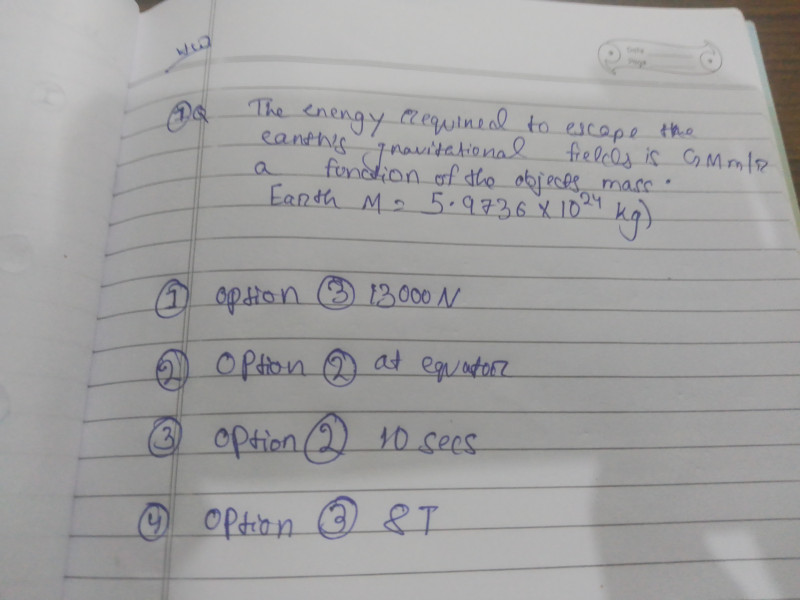 HW
①Q The energy required to escape the
earth's gravitational fields is GMm/R
a function of the objects mass.
Earth M = 5.9736 × 10²⁴ kg)
① option ③ 13000 N
② Option ② at equator
③ option ② 10 secs
④ option ③ 8T